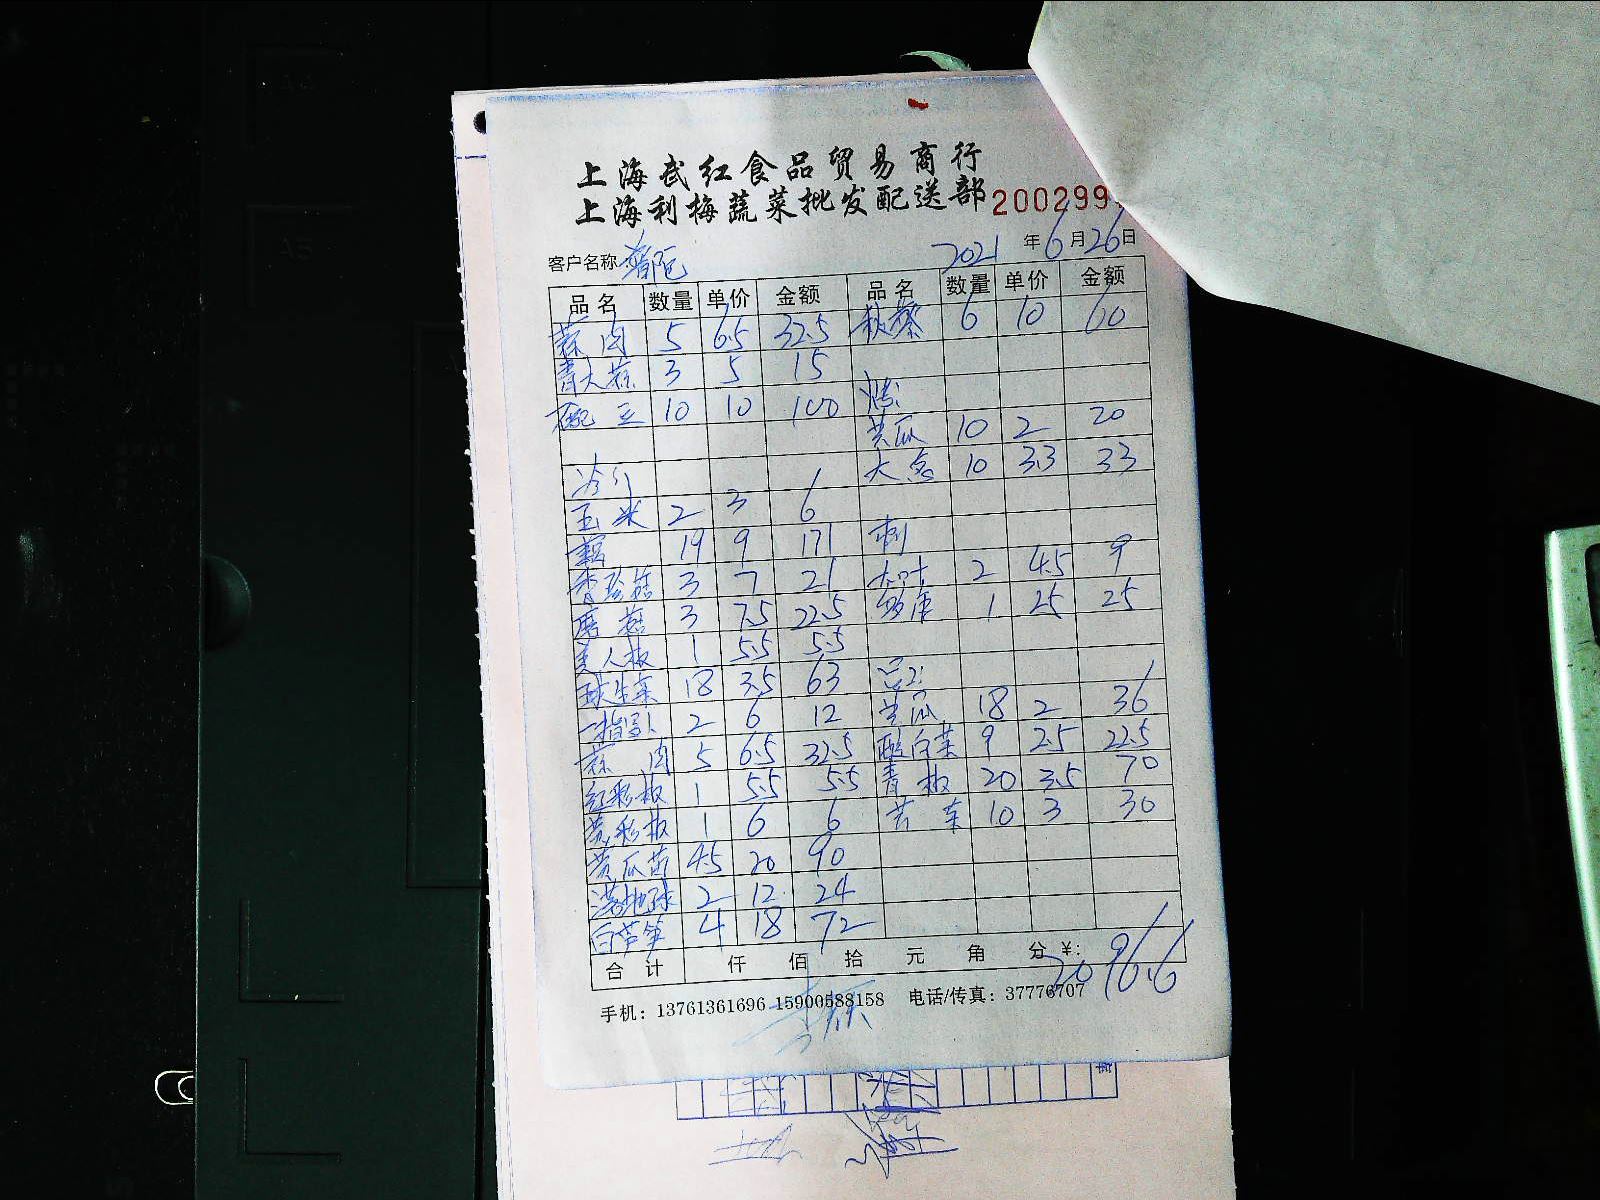 上海武红食品贸易商行
上海利梅蔬菜批发配送部 200299
客户名称 普陀 2021 年 6 月 26 日
品名 数量 单价 金额 品名 数量 单价 金额
蒜肉 5 6.5 32.5 秋葵 6 10 60
青大蒜 3 5 15
豌豆 10 10 100 烤:
黄瓜 10 2 20
大葱 10 3.3 33
玉米 2 3 6
藕 19 9 171 刺
杏珍菇 3 7 21 大叶 2 4.5 9
磨菇 3 7.5 22.5 1 25 25
美人椒 1 5.5 5.5
球生菜 18 3.5 63
2 6 12 黄瓜 18 2 36
蒜肉 5 6.5 32.5 酸白菜 9 2.5 22.5
红彩椒 1 5.5 5.5 青椒 20 3.5 70
黄彩椒 1 6 6 10 3 30
黄瓜苗 4.5 20 90
满地球 2 12 24
白芦笋 4 18 72
合计 仟 佰 拾 元 角 分 ¥: 2096.6
手机：13761361696 15900588158 电话/传真：37776707